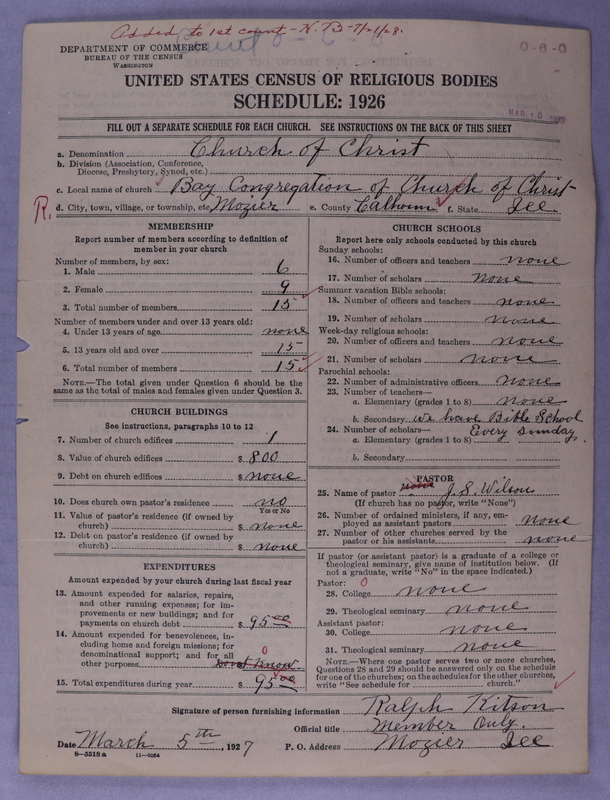 Added to 1st count - H. B - 7/21/28.
DEPARTMENT OF COMMERCE
BUREAU OF THE CENSUS
WASHINGTON
0-6-0
UNITED STATES CENSUS OF RELIGIOUS BODIES
SCHEDULE: 1926
MAR 10
FILL OUT A SEPARATE SCHEDULE FOR EACH CHURCH. SEE INSTRUCTIONS ON THE BACK OF THIS SHEET
a. Denomination Church of Christ
b. Division (Association, Conference, Diocese, Presbytery, Synod, etc.)
c. Local name of church Bay Congregation of Church of Christ
R. d. City, town, village, or township, etc. Mozier e. County Calhoun f. State Ill
MEMBERSHIP
Report number of members according to definition of
member in your church
Number of members, by sex:
1. Male 6
2. Female 9
3. Total number of members 15
Number of members under and over 13 years old:
4. Under 13 years of age none
5. 13 years old and over 15
6. Total number of members 15
NOTE.—The total given under Question 6 should be
same as the total of males and females given under Question 3.
CHURCH BUILDINGS
See instructions, paragraphs 10 to 12
7. Number of church edifices 1
8. Value of church edifices $ 800
9. Debt on church edifices $ none
10. Does church own pastor's residence no
Yes or No
11. Value of pastor's residence (if owned by
church) $ none
12. Debt on pastor's residence (if owned by
church) $ none
EXPENDITURES
Amount expended by your church during last fiscal year
13. Amount expended for salaries, repairs,
and other running expenses; for im-
provements or new buildings; and for
payments on church debt $ 95.00
14. Amount expended for benevolences, in-
cluding home and foreign missions; for
denominational support; and for all
other purposes Do not Know 0
15. Total expenditures during year $ 95.00
CHURCH SCHOOLS
Report here only schools conducted by this church
Sunday schools:
16. Number of officers and teachers none
17. Number of scholars None
Summer vacation Bible schools:
18. Number of officers and teachers none
19. Number of scholars none
Week-day religious schools:
20. Number of officers and teachers none
21. Number of scholars none
Parochial schools:
22. Number of administrative officers none
23. Number of teachers—
a. Elementary (grades 1 to 8) none
b. Secondary we have Bible School
24. Number of scholars— Every Sunday.
a. Elementary (grades 1 to 8)
b. Secondary
PASTOR
25. Name of pastor none J. S. Wilson
(If church has no pastor, write "None")
26. Number of ordained ministers, if any, em-
ployed as assistant pastors none
27. Number of other churches served by the
pastor or his assistants none
If pastor (or assistant pastor) is a graduate of a college or
theological seminary, give name of institution below. (If
not a graduate, write "No" in the space indicated.)
Pastor: 0
28. College none
29. Theological seminary none
Assistant pastor:
30. College none
31. Theological seminary none
NOTE.—Where one pastor serves two or more churches,
Questions 28 and 29 should be answered only on the schedule
for one of the churches; on the schedules for the other churches,
write "See schedule for ........ church."
Signature of person furnishing information Ralph Kitson
Official title Member Only.
Date March 5th, 1927 P. O. Address Mozier Ill
8—5518a 11—9064